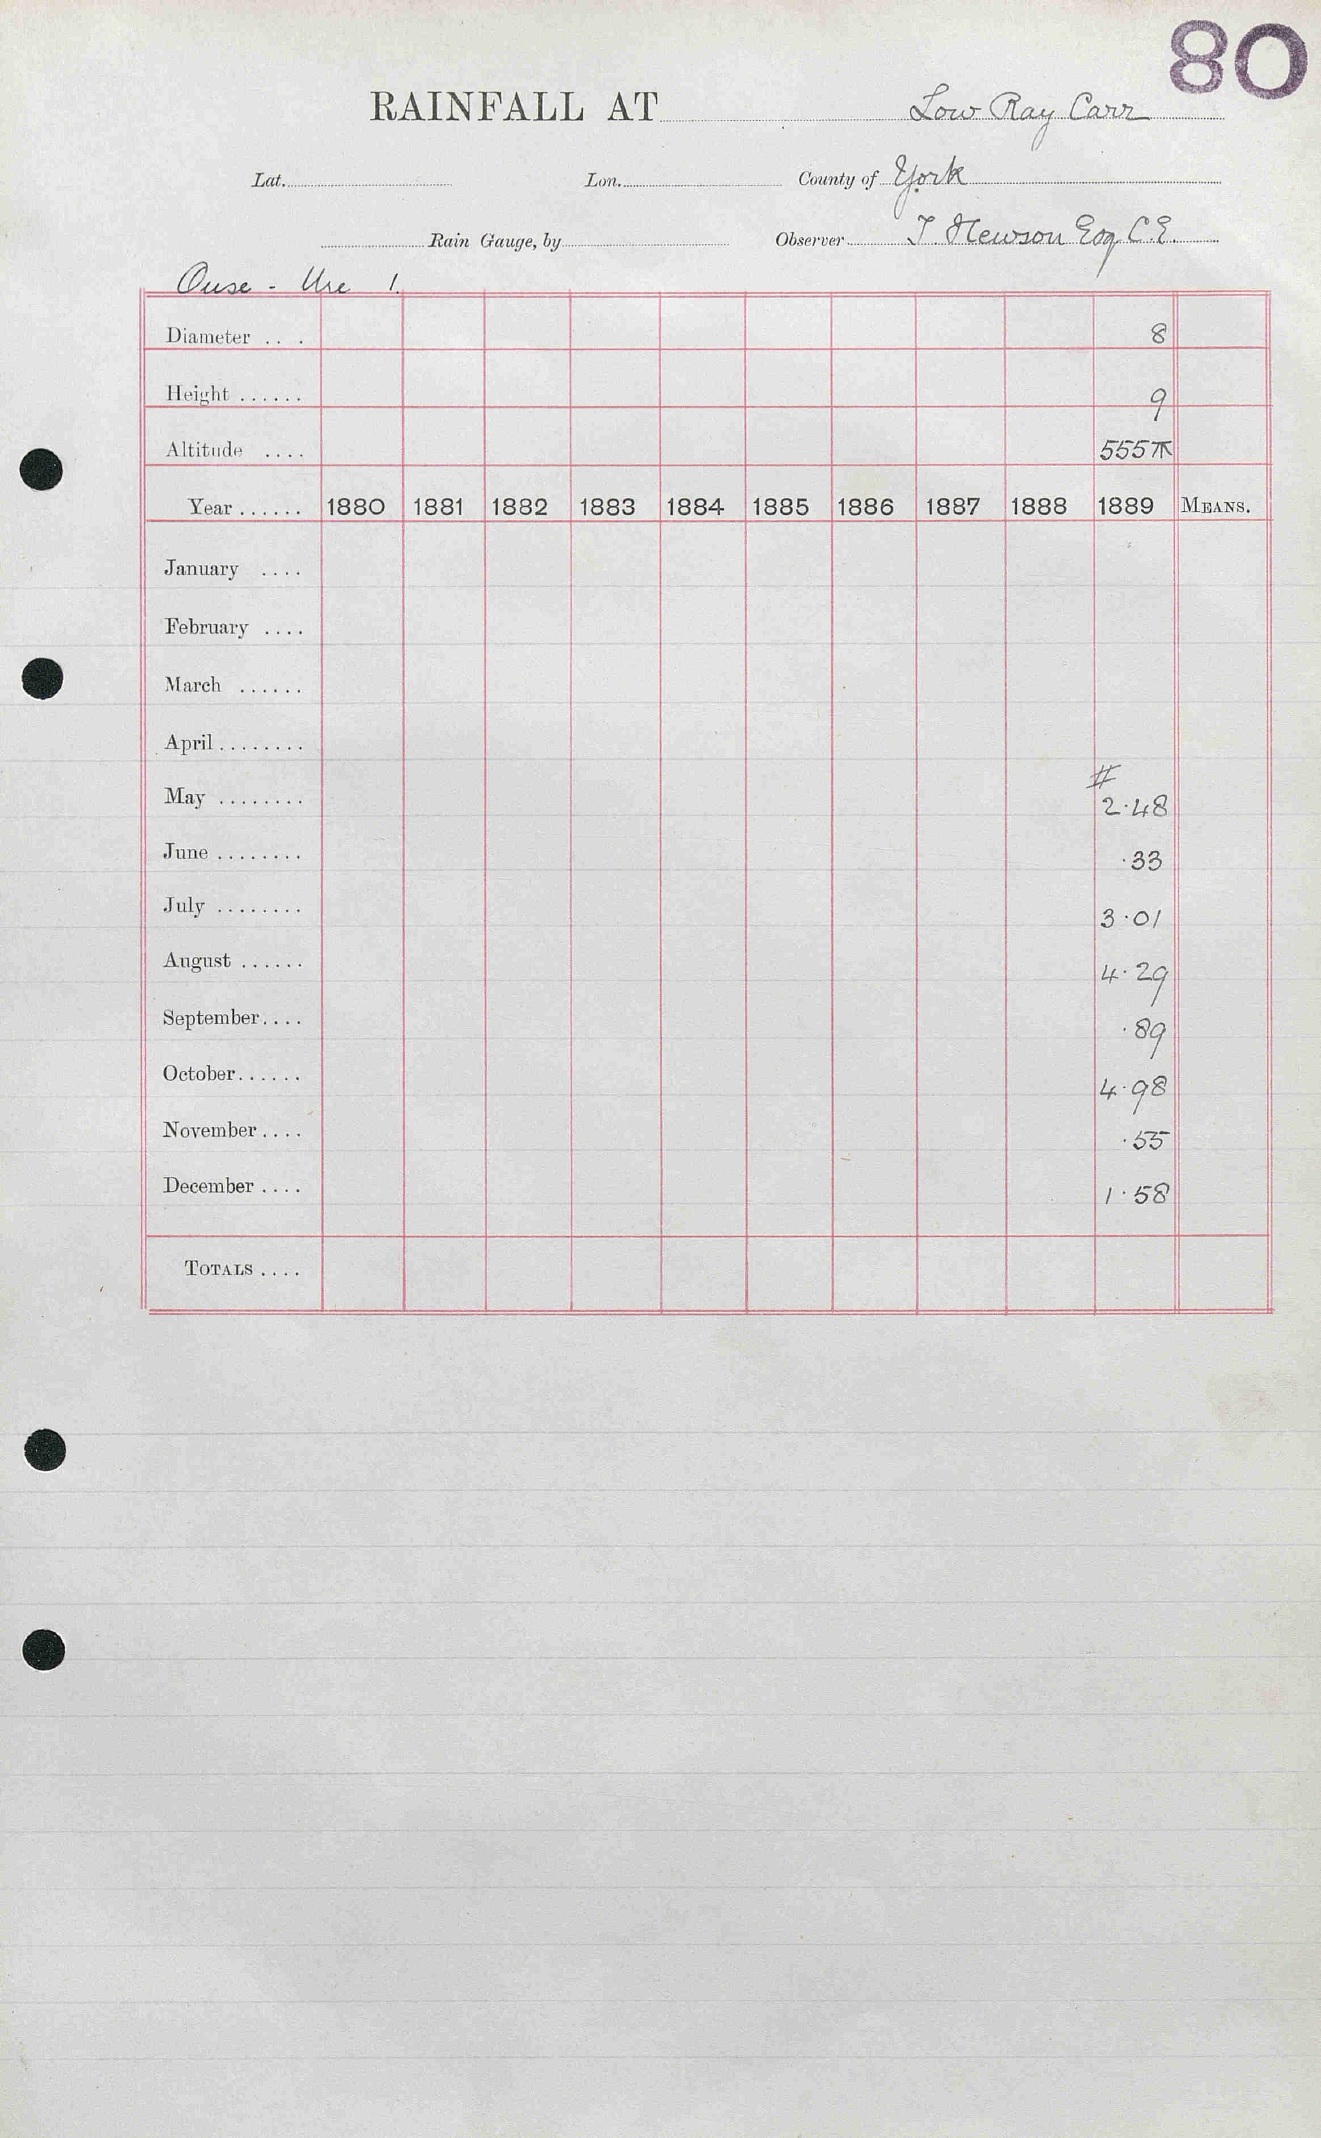 80
RAINFALL AT Low Ray Carr
Lat. Lon. County of York
Rain Gauge, by Observer T. Hewson Esq C.E.
Ouse - Ure 1.
Diameter .. . 8
Height ...... 9
Altitude .... 555 T
Year ...... 1880 1881 1882 1883 1884 1885 1886 1887 1888 1889 MEANS.
January ....
February ....
March ......
April ........
#
May ........ 2.48
June ........ .33
July ........ 3.01
August ...... 4.29
September.... .89
October...... 4.98
November.... .55
December.... 1.58
TOTALS ....